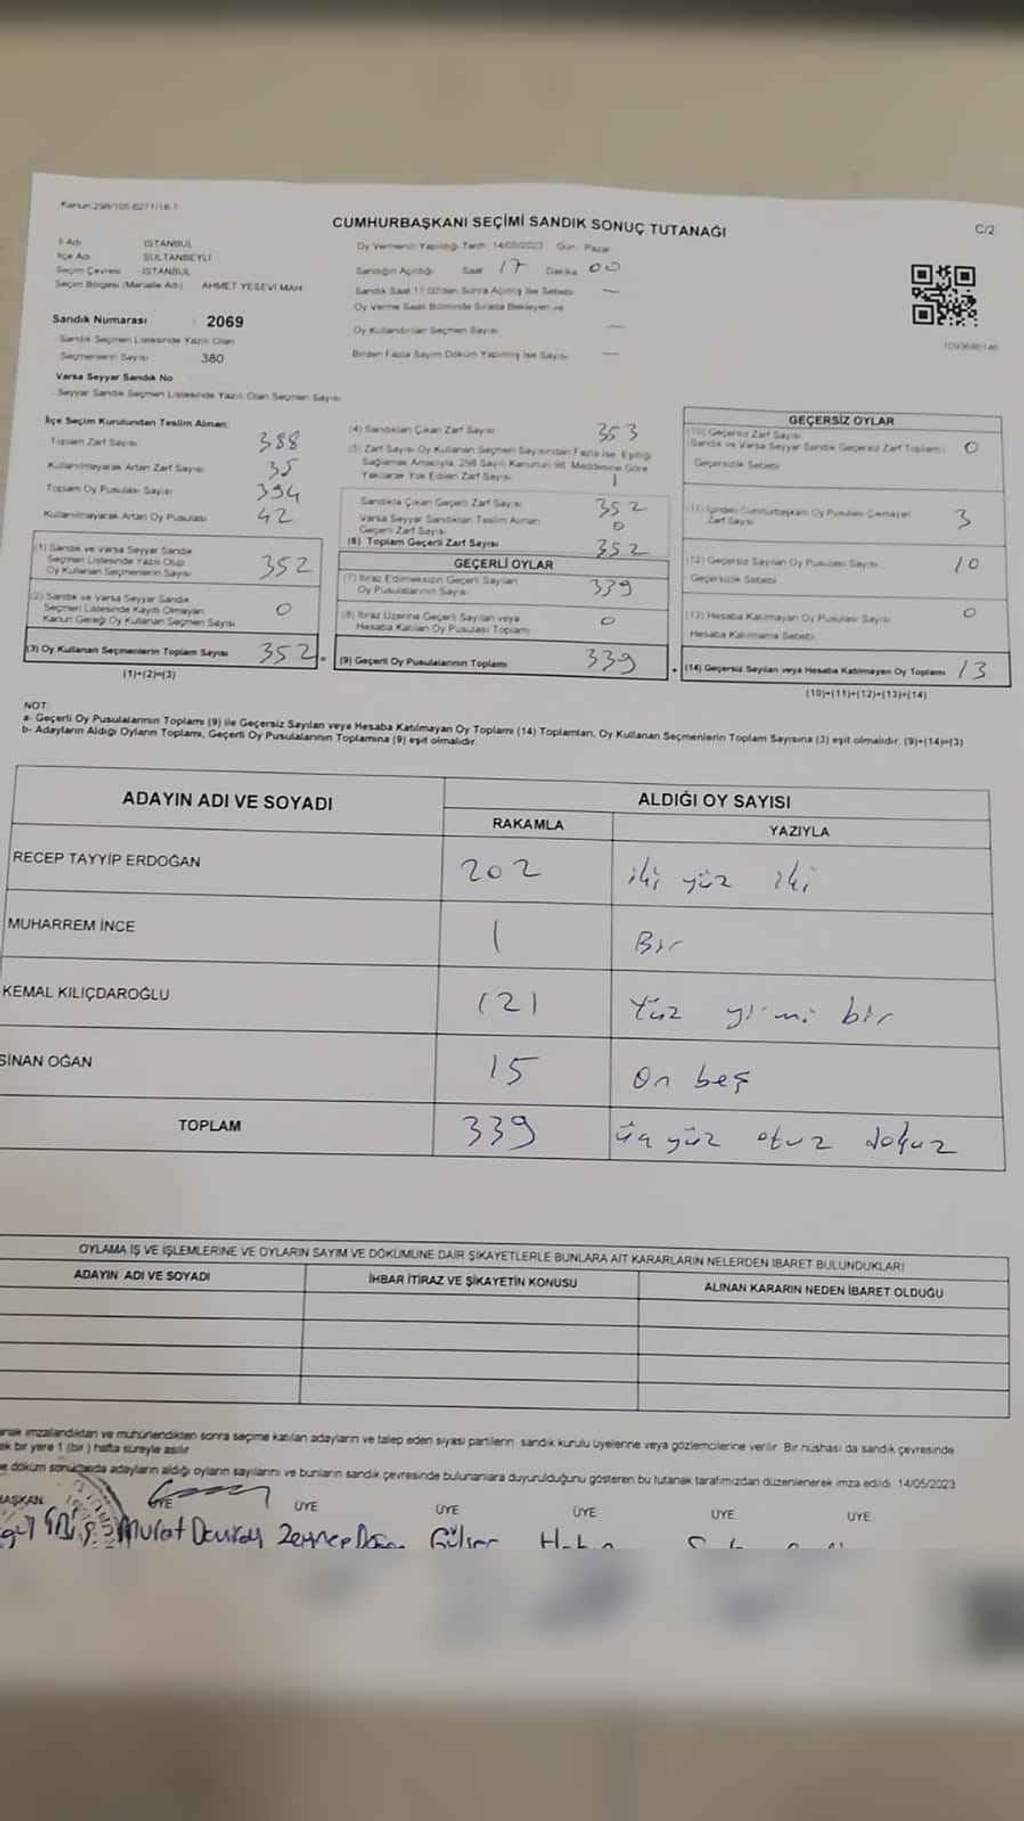 Kanun:298/105-6271/18-1
CUMHURBAŞKANI SEÇİMİ SANDIK SONUÇ TUTANAĞI
C/2
İl Adı İSTANBUL
İlçe Adı SULTANBEYLİ
Seçim Çevresi İSTANBUL
Seçim Bölgesi (Mahalle Adı) AHMET YESEVİ MAH
Oy Vermenin Yapıldığı Tarih 14/05/2023 Gün: Pazar
Sandığın Açıldığı Saat 17 Dakika 00
Sandık Saat 17:00'den Sonra Açılmış İse Sebebi —
Oy Verme Saati Bitiminde Sırada Bekleyen ve
Oy Kullandırılan Seçmen Sayısı —
Birden Fazla Sayım Döküm Yapılmış İse Sayısı —
Sandık Numarası : 2069
Sandık Seçmen Listesinde Yazılı Olan
Seçmenlerin Sayısı 380
Varsa Seyyar Sandık No
Seyyar Sandık Seçmen Listesinde Yazılı Olan Seçmen Sayısı
İlçe Seçim Kurulundan Teslim Alınan:
Toplam Zarf Sayısı 388
Kullanılmayarak Artan Zarf Sayısı 35
Toplam Oy Pusulası Sayısı 394
Kullanılmayarak Artan Oy Pusulası 42
(1) Sandık ve Varsa Seyyar Sandık
Seçmen Listesinde Yazılı Olup
Oy Kullanan Seçmenlerin Sayısı 352
(2) Sandık ve Varsa Seyyar Sandık
Seçmen Listesinde Kayıtlı Olmayan
Kanun Gereği Oy Kullanan Seçmen Sayısı 0
(3) Oy Kullanan Seçmenlerin Toplam Sayısı 352
(1)+(2)=(3)
(4) Sandıktan Çıkan Zarf Sayısı 353
(5) Zarf Sayısı Oy Kullanan Seçmen Sayısından Fazla İse, Eşitliği
Sağlamak Amacıyla, 298 Sayılı Kanunun 98. Maddesine Göre
Yakılarak Yok Edilen Zarf Sayısı 1
Sandıkta Çıkan Geçerli Zarf Sayısı 352
Varsa Seyyar Sandıktan Teslim Alınan
Geçerli Zarf Sayısı 0
(6) Toplam Geçerli Zarf Sayısı 352
GEÇERLİ OYLAR
(7) İtiraz Edilmeksizin Geçerli Sayılan
Oy Pusulalarının Sayısı 339
(8) İtiraz Üzerine Geçerli Sayılan veya
Hesaba Katılan Oy Pusulası Toplamı 0
(9) Geçerli Oy Pusulalarının Toplamı 339
GEÇERSİZ OYLAR
(10) Geçersiz Zarf Sayısı
(Sandık ve Varsa Seyyar Sandık Geçersiz Zarf Toplamı) 0
Geçersizlik Sebebi
(11) İçinden Cumhurbaşkanı Oy Pusulası Çıkmayan
Zarf Sayısı 3
(12) Geçersiz Sayılan Oy Pusulası Sayısı 10
Geçersizlik Sebebi
(13) Hesaba Katılmayan Oy Pusulası Sayısı 0
Hesaba Katılmama Sebebi
(14) Geçersiz Sayılan veya Hesaba Katılmayan Oy Toplamı 13
(10)+(11)+(12)+(13)=(14)
NOT:
a- Geçerli Oy Pusulalarının Toplamı (9) ile Geçersiz Sayılan veya Hesaba Katılmayan Oy Toplamı (14) Toplamları, Oy Kullanan Seçmenlerin Toplam Sayısına (3) eşit olmalıdır. (9)+(14)=(3)
b- Adayların Aldığı Oyların Toplamı, Geçerli Oy Pusulalarının Toplamına (9) eşit olmalıdır.
ADAYIN ADI VE SOYADI
ALDIĞI OY SAYISI
RAKAMLA YAZIYLA
RECEP TAYYİP ERDOĞAN 202 iki yüz iki
MUHARREM İNCE 1 Bir
KEMAL KILIÇDAROĞLU 121 Yüz yirmi bir
SİNAN OĞAN 15 On beş
TOPLAM 339 üç yüz otuz dokuz
OYLAMA İŞ VE İŞLEMLERİNE VE OYLARIN SAYIM VE DÖKÜMÜNE DAİR ŞİKAYETLERLE BUNLARA AİT KARARLARIN NELERDEN İBARET BULUNDUKLARI
ADAYIN ADI VE SOYADI İHBAR İTİRAZ VE ŞİKAYETİN KONUSU ALINAN KARARIN NEDEN İBARET OLDUĞU
imzalandıktan ve mühürlendikten sonra seçime katılan adayların ve talep eden siyasi partilerin sandık kurulu üyelerine veya gözlemcilerine verilir. Bir nüshası da sandık çevresinde
bir yere 1 (bir) hafta süreyle asılır.
döküm sonucunda adayların aldığı oyların sayılarını ve bunların sandık çevresinde bulunanlara duyurulduğunu gösteren bu tutanak tarafımızdan düzenlenerek imza edildi. 14/05/2023
BAŞKAN ÜYE ÜYE ÜYE ÜYE ÜYE ÜYE
Murat Zeynep Gülser